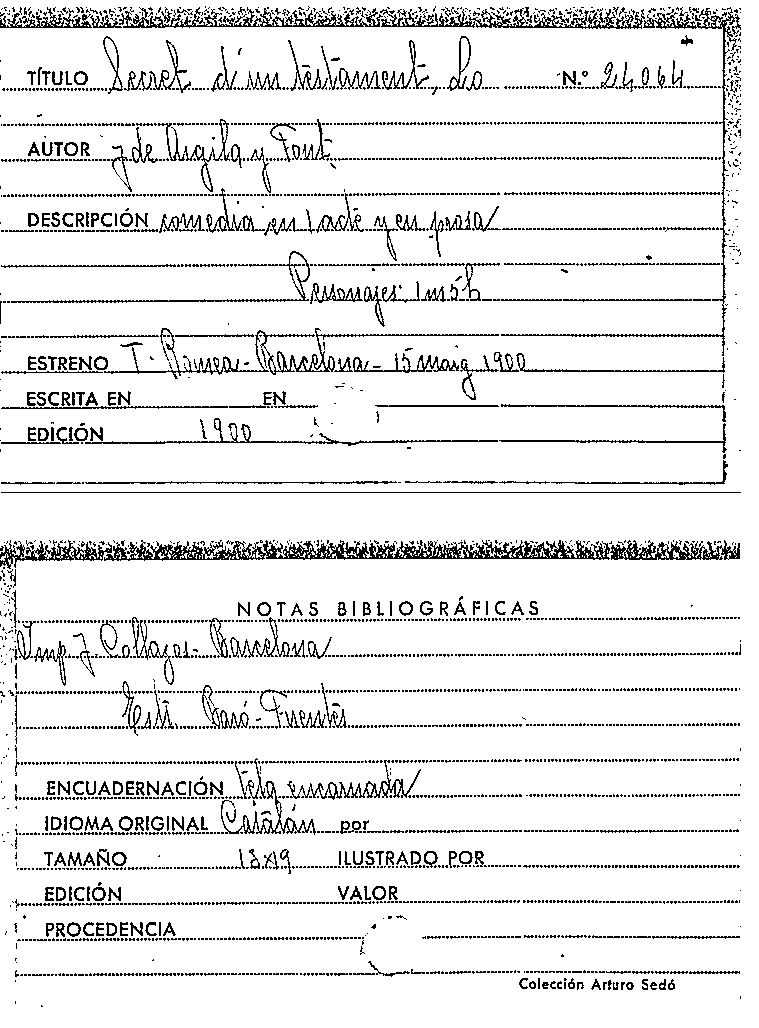 TÍTULO Secret d'un testament, Lo N.º 24064
AUTOR J de Argila y Font
DESCRIPCIÓN comedia en 1 acte y en prosa
Personajes: 1m 5h
ESTRENO T. Romea - Barcelona - 15 maig 1900
ESCRITA EN EN
EDICIÓN 1900
NOTAS BIBLIOGRÁFICAS
Imp. J. Collazos - Barcelona
Estr. Baró - Fuentes
ENCUADERNACIÓN tela encarnada
IDIOMA ORIGINAL Catalán por
TAMAÑO 13x19 ILUSTRADO POR
EDICIÓN VALOR
PROCEDENCIA
Colección Arturo Sedó